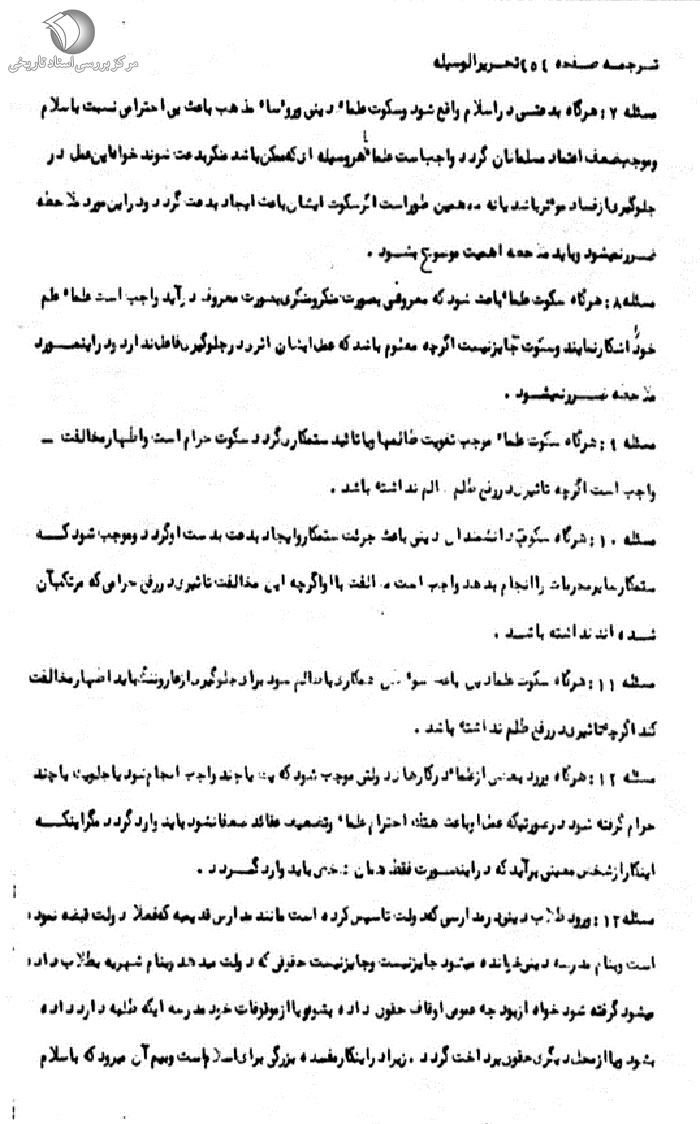 مرکز بررسی اسناد تاریخی
ترجمه صفحه تحریرالوسیله
مسئله ۷ : هرگاه بدعتی در اسلام واقع شود وسکوت علماء دینی ورؤساء مذهب باعث بی احترامی نسبت باسلام
وموجب ضعف اعتماد مسلمانان گردد واجب است علماء هروسیله ای که ممکن باشد منکر بدعت شوند خواه این عمل در
جلوگیری از فساد موثر باشد یا نه همین طور است اگر سکوت ایشان باعث ایجاد بدعت گردد ودر این مورد ملاحظه
ضرر نمیشود وباید ملاحظه اهمیت موضوع بشود .
مسئله ۸ : هرگاه سکوت علماء باعث شود که معروفی بصورت منکر ومنکری بصورت معروف درآید واجب است علماء علم
خود را آشکار نمایند وسکوت جایز نیست اگرچه معلوم باشد که عمل ایشان اثری در جلوگیری فاعل ندارد ودر اینصورد
ملاحظه ضرر نمیشود .
مسئله ۹ : هرگاه سکوت علماء موجب تقویت ظالمها ویا تائید ستمکاری گردد سکوت حرام است واظهار مخالفت _
واجب است اگرچه تاثیری در رفع ظلم الم نداشته باشد .
مسئله ۱۰ : هرگاه سکوت دانشمندان دینی باعث جرئت ستمکار وایجاد بدعت بدست او گردد وموجب شود که
ستمکار سایر محرمات را انجام بدهد واجب است الفت با او اگرچه این مخالفت تاثیری در رفع حرامی که مرتکب آن
شده اند نداشته باشد .
مسئله ۱۱ : هرگاه سکوت علماء دینی باعث سوء همکاری با ظالم شود برای جلوگیری از عار وننگ باید اظهار مخالفت
کند اگرچه تاثیری در رفع ظلم نداشته باشد .
مسئله ۱۲ : هرگاه ورود بعضی از علماء در کارهای دولتی موجب شود که یک یا چند واجب انجام شود یا جلو یک یا چند
حرام گرفته شود در صورتیکه عمل او باعث هتک احترام علماء وتضعیف عقائد ضعفا نشود باید وارد گردد مگر اینکه
اینکار از شخص معینی برآید که در اینصورت فقط همان شخص باید وارد گردد .
مسئله ۱۲ : ورود طلاب دینی در مدارسی که دولت تاسیس کرده است مانند مدارس قدیمه که فعلا دولت قبضه نموده
است وبنام مدرسه دینی خوانده میشود جایز نیست وجایز نیست حقوقی که دولت میدهد وبنام شهریه بطلاب داده
میشود گرفته شود خواه از بودجه عمومی اوقاف حقوق داده بشود ویا از موقوفات خود مدرسه ایکه طلبه دارد داده
بشود ویا از محل دیگری حقوق پرداخت گردد . زیرا در اینکار مفسده بزرگی برای اسلام است وبیم آن میرود که باسلام